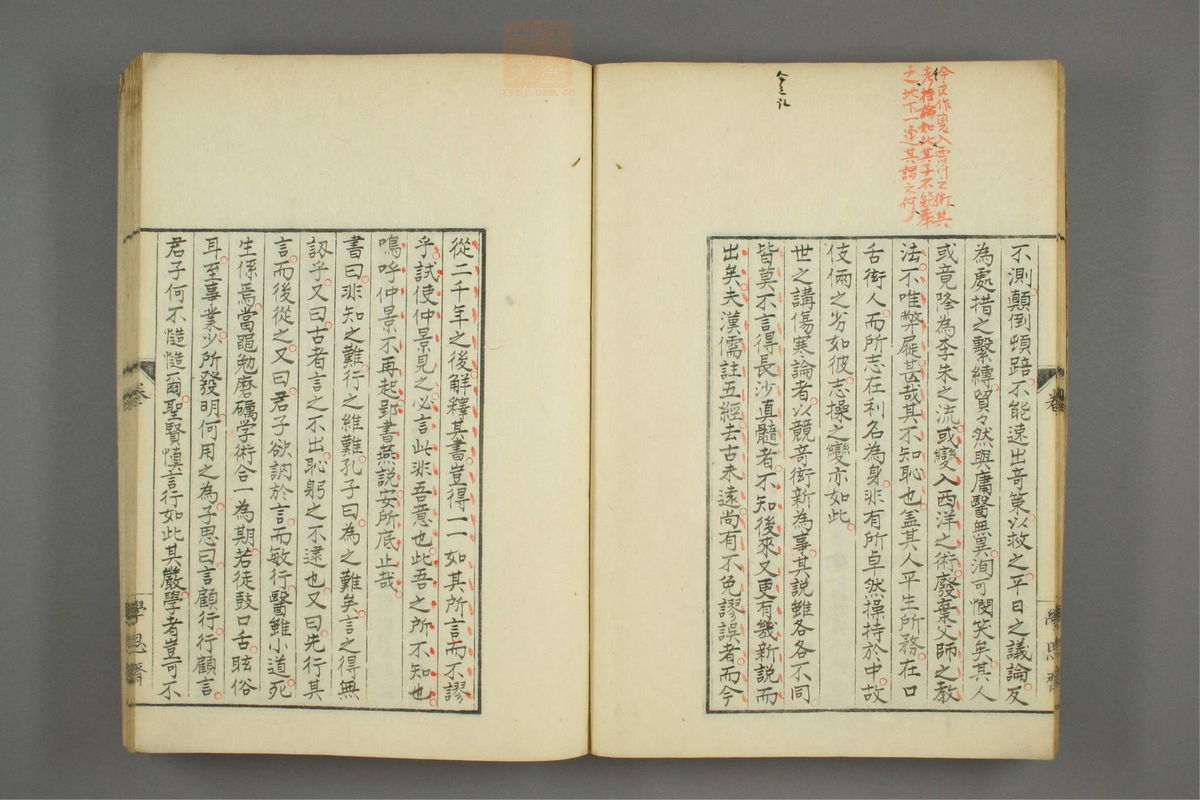 今良作變入西洋之術其
考持論如此其子不能奉
之地下一運其謂之何
不測顛倒頓踣不能速出竒策以救之平日之議論反
為處措之繫縛貿々然與庸醫無異洵可憫笑矣其人
或竟降為李朱之流或變入西洋之術廢棄父師之教
法不唯弊屣甚哉其不知恥也盖其人平生所務在口
舌衒人而所志在利名為身非有所卓然操持於中故
伎倆之劣如彼志操之變亦如此
世之講傷寒論者以競竒衒新為事其說雖各各不同
皆莫不言得長沙真髓者不知後來又更有幾新說而
出矣夫漢儒註五經去古未遠尚有不免謬誤者而今
卷
學思齋
從二千年之後解釋其書豈得一一如其所言而不謬
乎試使仲景見之必言此非吾意也此吾之所不知也
嗚呼仲景不再起郢書燕說安所底止哉
書曰非知之難行之維難孔子曰為之難矣言之得無
訒乎又曰古者言之不出恥躬之不逮也又曰先行其
言而後從之又曰君子欲訥於言而敏行醫雖小道死
生係焉當黽勉磨礪学術合一為期若徒鼓口舌眩俗
耳至事業少所發明何用之為子思曰言顧行行顧言
君子何不慥慥爾聖賢慎言行如此其嚴學者豈可不
卷
學思齋